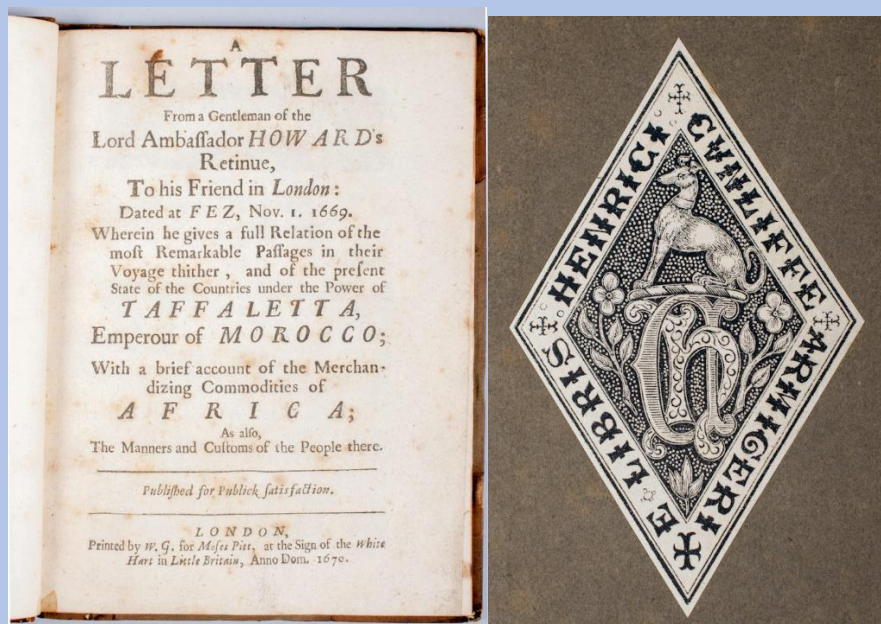 A
LETTER
From a Gentleman of the
Lord Ambaſſador HOWARD's
Retinue,
To his Friend in London:
Dated at FEZ, Nov. 1. 1669.
Wherein he gives a full Relation of the
moſt Remarkable Paſſages in their
Voyage thither, and of the preſent
State of the Countries under the Power of
TAFFALETTA,
Emperour of MOROCCO;
With a brief account of the Merchan-
dizing Commodities of
AFRICA;
As alſo,
The Manners and Cuſtoms of the People there.
Publiſhed for Publick ſatisfaction.
LONDON,
Printed by W. G. for Moſes Pitt, at the Sign of the White
Hart in Little Britain, Anno Dom. 1670.
E LIBRIS HENRICI
CVNLIFFE ARMIGERI